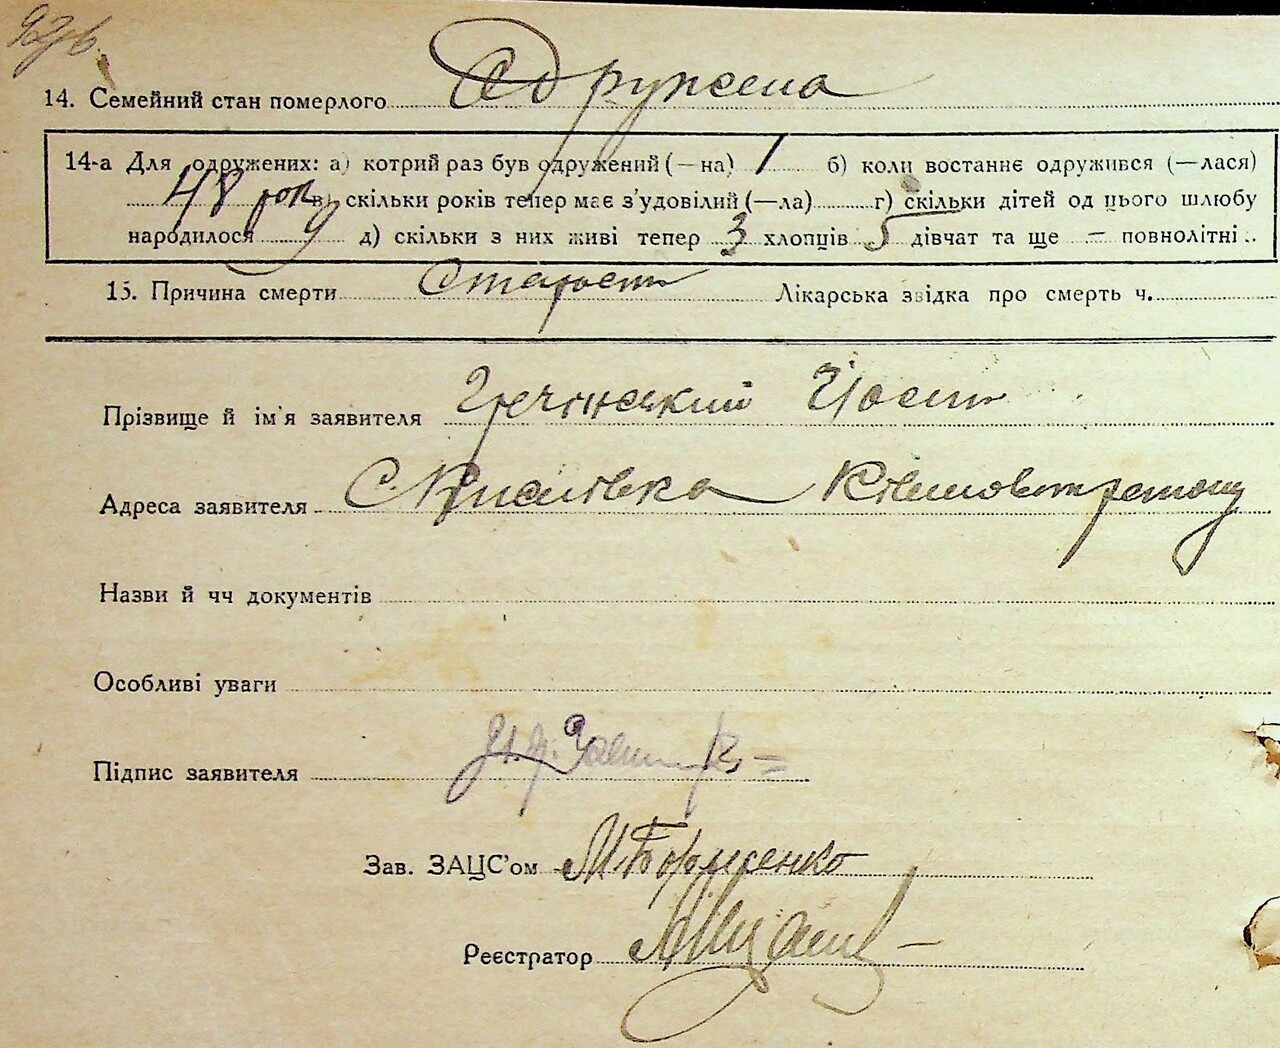 14. Семейний стан померлого Одружена
14-а Для одружених: а) котрий раз був одружений (—на) 1 б) коли востаннє одружився (—лася)
48 рок в) скільки років тепер має з’удовілий (—ла) г) скільки дітей од цього шлюбу
народилося 9 д) скільки з них живі тепер 3 хлопців 5 дівчат та ще – повнолітні..
15. Причина смерти Старость Лікарська звідка про смерть ч.
Прізвище й ім’я заявителя Гречинський
Адреса заявителя С.
Назви й чч документів
Особливі уваги
Підпис заявителя
Зав. ЗАЦС’ом М.
Реєстратор